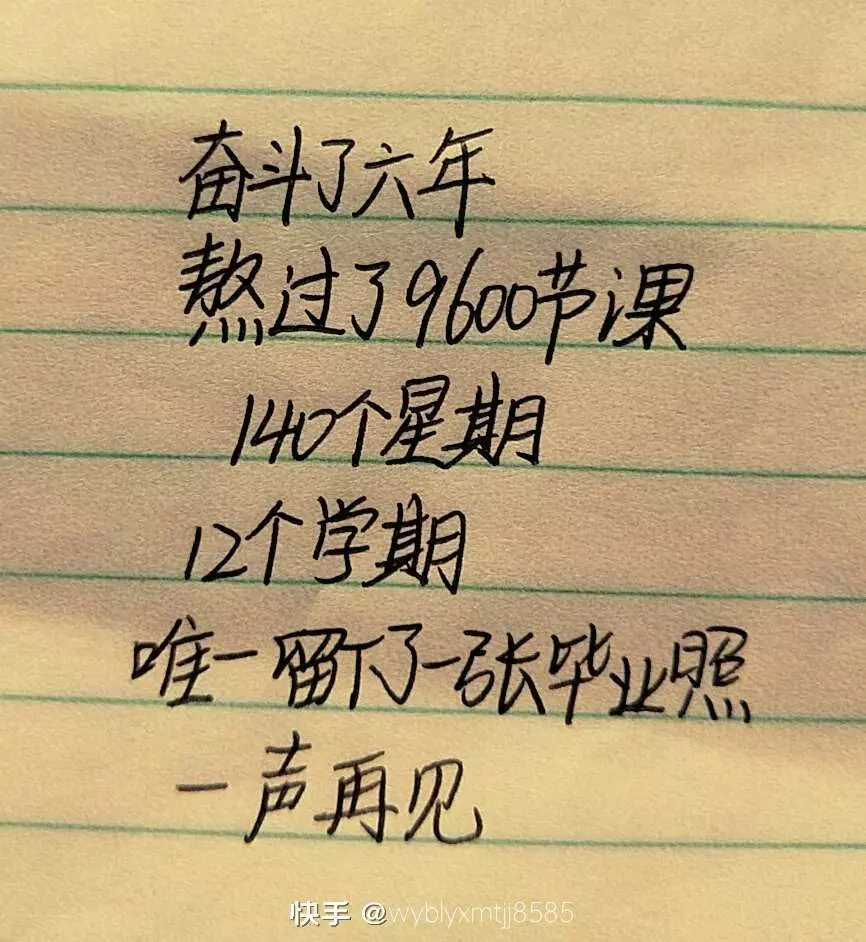 奋斗了六年
熬过了9600节课
140个星期
12个学期
唯一留下了一张毕业照
一声再见
快手 @wyblyxmtjj8585